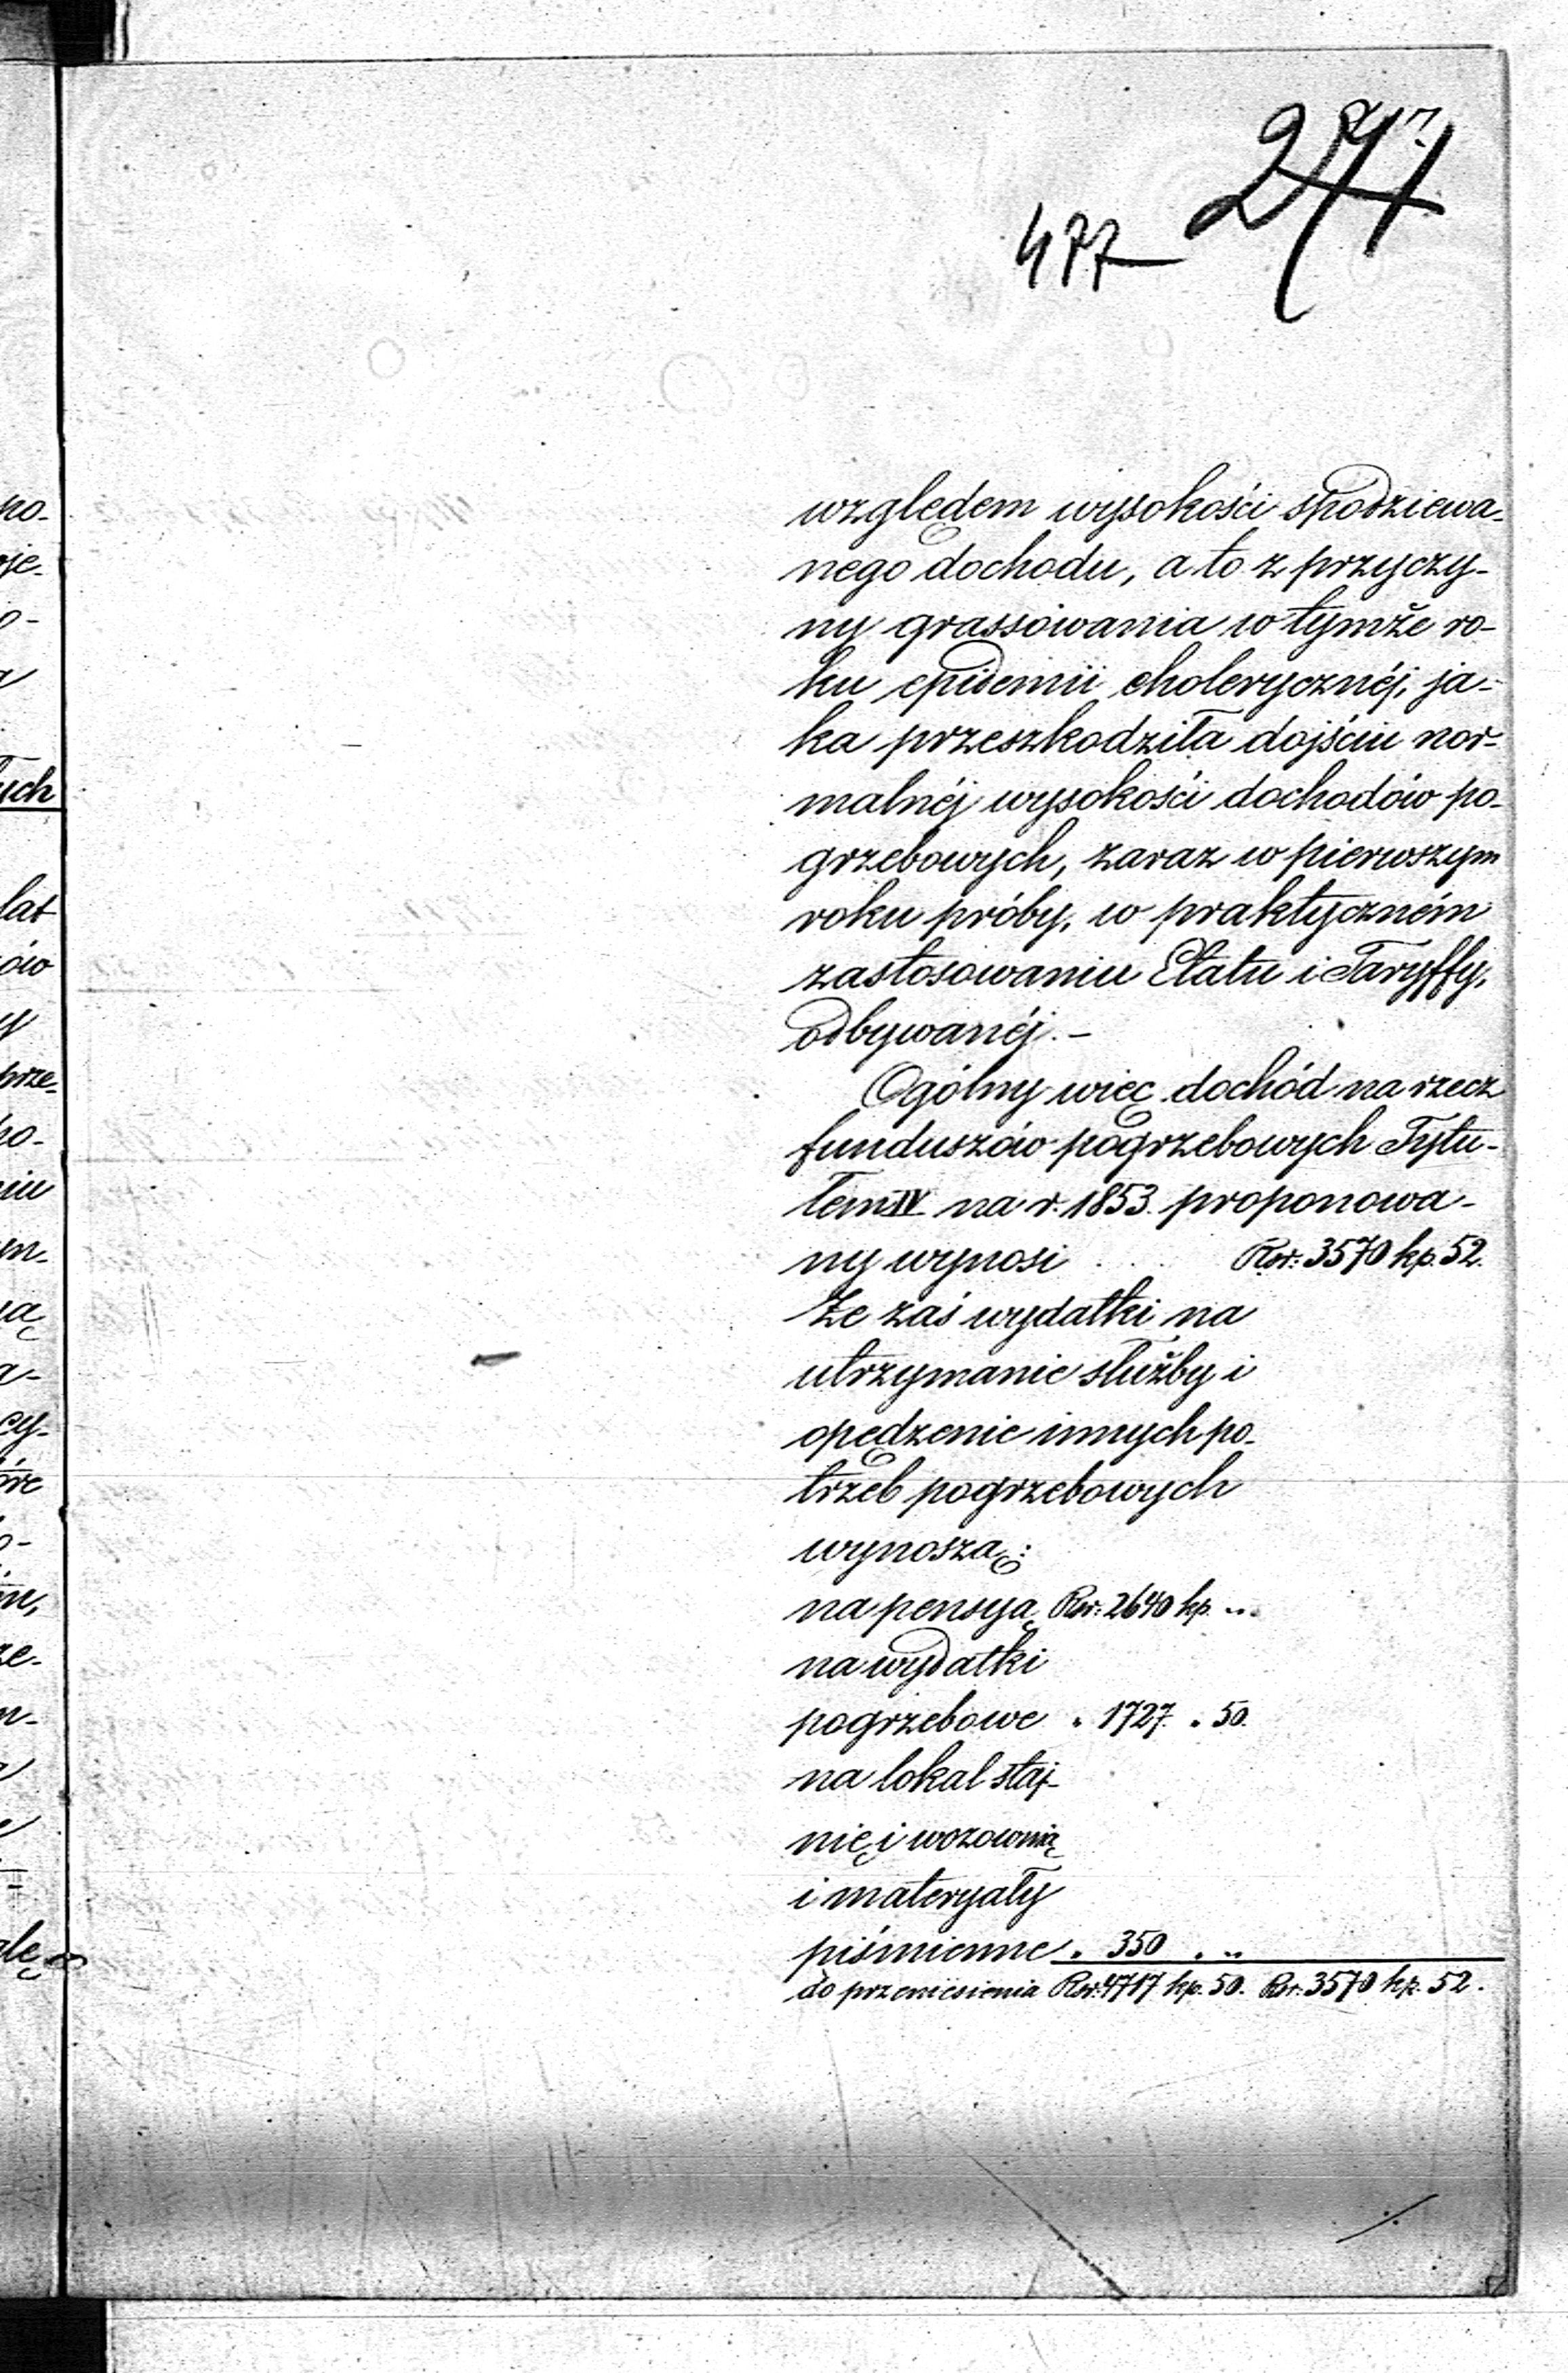 277
477
względem wysokości spodziewa-
nego dochodu, a to z przyczy-
ny grassowania w tymże ro-
ku epidemii cholerycznéj, ja-
ka przeszkodziła dojściu nor-
malnéj wysokości dochodów po-
grzebowych, zaraz w pierwszym
roku próby, w praktyczném
zastosowaniu Etatu i Taryffy,
odbywanéj. -
Ogólny więc dochód na rzecz
funduszów pogrzebowych Tytu-
łem IV na r. 1853. proponowa-
ny wynosi . . . Rsr: 3570 kp. 52.
Że zaś wydatki na
utrzymanie służby i
opędzenie innych po-
trzeb pogrzebowych
wynoszą:
na pensyą Rsr: 2640 kp. „.
na wydatki
pogrzebowe „ 1727. „ 50.
na lokal staj-
nię i wozownią
i materyały
piśmienne „ 350 „ „
do przeniesienia Rsr. 4717 kp. 50. Rsr. 3570 kp. 52.
po-
oje-
ych
lat
ów
y
prze-
po-
niu
m-
ną
a-
cy-
óre
ze-
glę